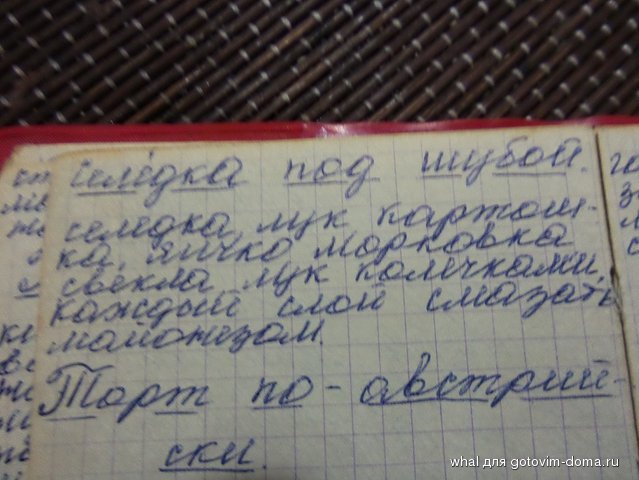 Селёдка под шубой.
селедка, лук картош-
ка, яичко морковка
свёкла, лук колечками,
каждый слой смазать
майонезом.
Торт по-австрий-
ски.
whal для gotovim-doma.ru